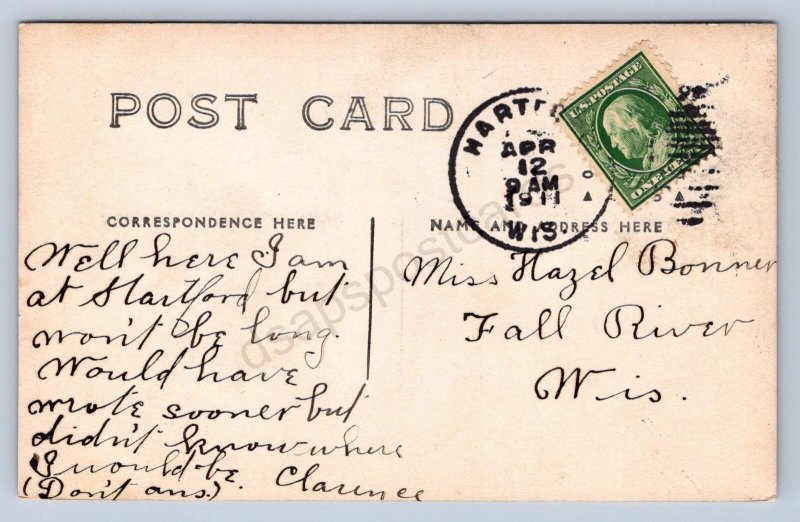 POST CARD
HARTF
APR
12
9 AM
1911
WIS.
U.S. POSTAGE
CORRESPONDENCE HERE
NAME AND ADDRESS HERE
Well here I am
at Hartford but
won't be long.
Would have
wrote sooner but
didn't know where
I would be.
(Don't ans.) Clarence
Miss Hazel Bonner
Fall River
Wis.
dsapspostcards